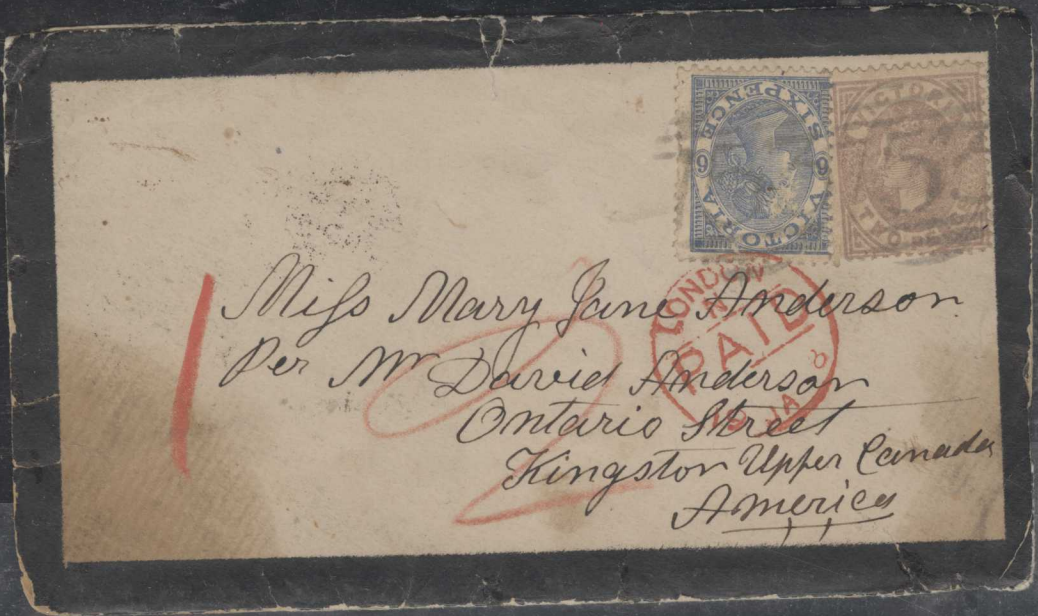 VICTORIA
SIXPENCE
6 6
VICTORIA
TWO
5
LONDON
PAID
JA
Miss Mary Jane Anderson
Per Mr David Anderson
Ontario Street
Kingston Upper Canada
America
1
2